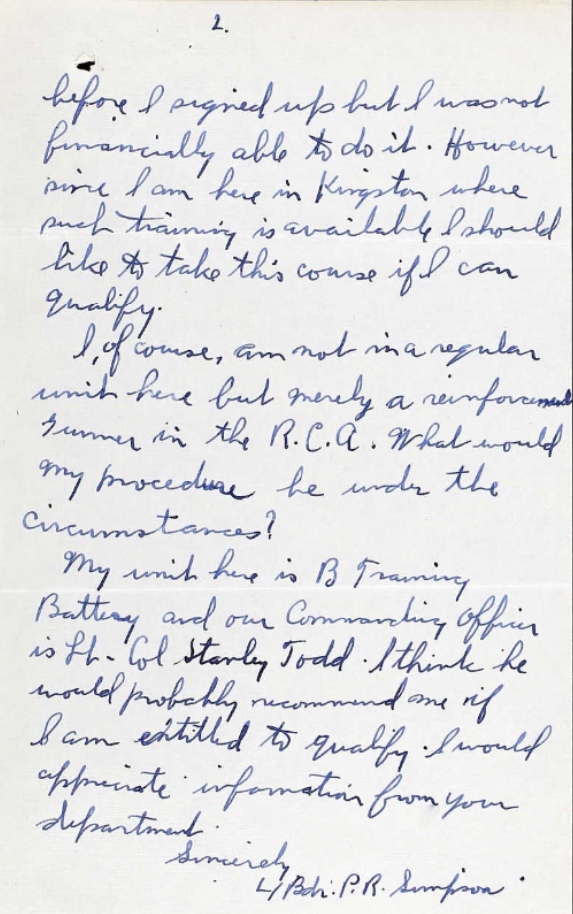 2.
before I signed up but I was not
financially able to do it. However
since I am here in Kingston where
such training is available I should
like to take this course if I can
qualify.
I, of course, am not in a regular
unit here but merely a reinforcement
gunner in the R.C.A. What would
my procedure be under the
circumstances?
My unit here is B Training
Battery and our Commanding Officer
is Lt-Col Stanley Todd. I think he
would probably recommend me if
I am entitled to qualify. I would
appreciate information from your
department.
Sincerely
L/Bdr. P.R. Simpson.